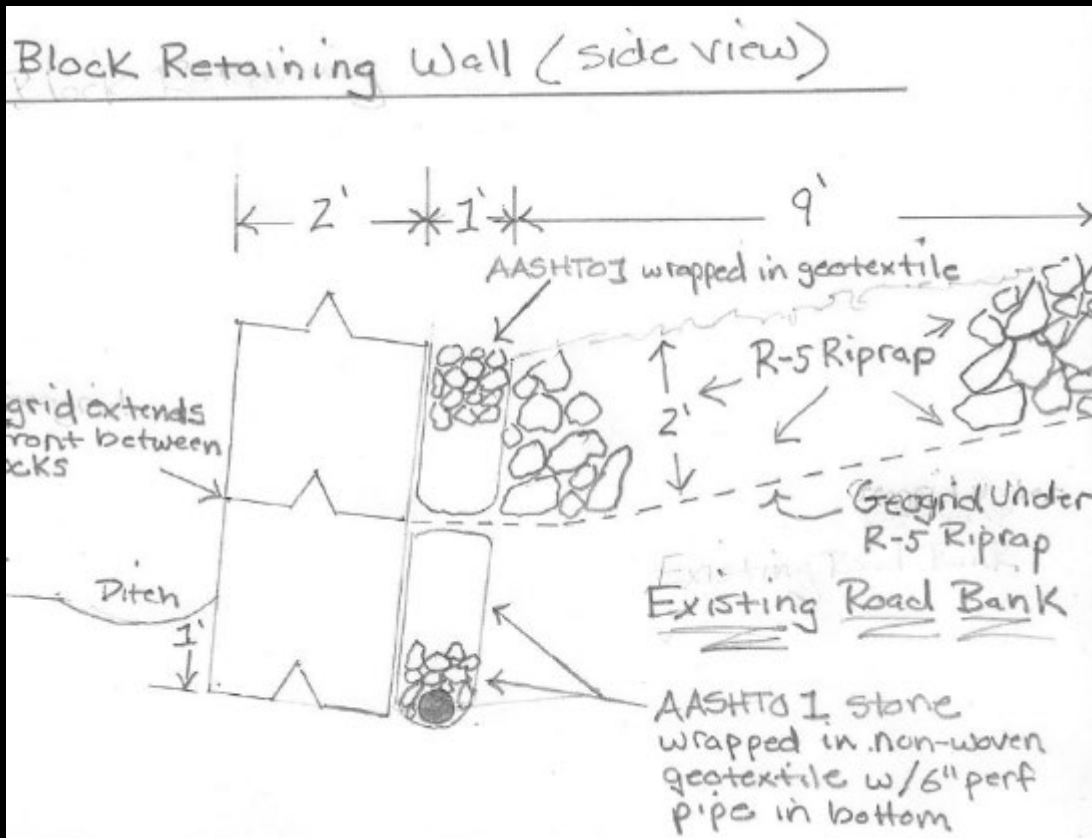 Block Retaining Wall (side view)
2' 1' 9'
AASHTO1 wrapped in geotextile
R-5 Riprap
2'
grid extends
ront between
ocks
Geogrid Under
R-5 Riprap
Ditch
1'
Existing Road Bank
AASHTO 1 stone
wrapped in non-woven
geotextile w/6" perf
pipe in bottom